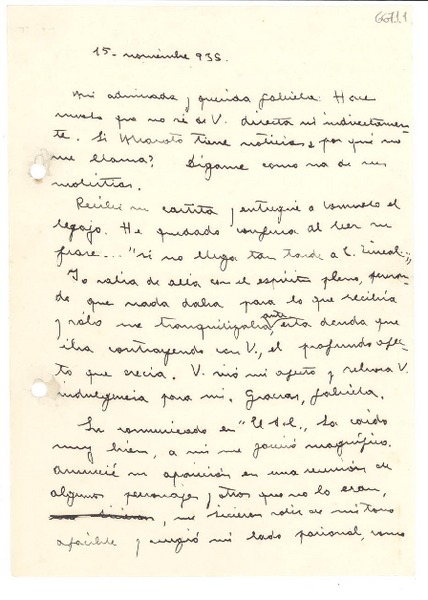 15 - noviembre 935.
Mi admirada y querida Gabriela: Hace
mucho que no sé de V. directa ni indirectamen-
te. Si tiene noticias, ¿por qué no
me llama? Dígame como va de sus
molestias.
Recibí su cartita y entregué a Consuelo el
legajo. He quedado confusa al leer su
frase... "si no llega tan tarde a C. Lineal".,
Yo salía de allá con el espíritu pleno, pensan-
do que nada daba para lo que recibía
y sólo me tranquilizaba, ante esta deuda que
iba contrayendo con V., el profundo afec-
to que crecía. V. vió mi afecto y rebosa V.
indulgencia para mí. Gracias, Gabriela.
Su comunicado en "El Sol", ha caído
muy bien, a mi me pareció magnífico.
Anuncié su aparición en una reunión de
algunos personajes y otros que no lo eran,
me hicieron salir de mi tono
apacible y surgió mi lado pasional, como